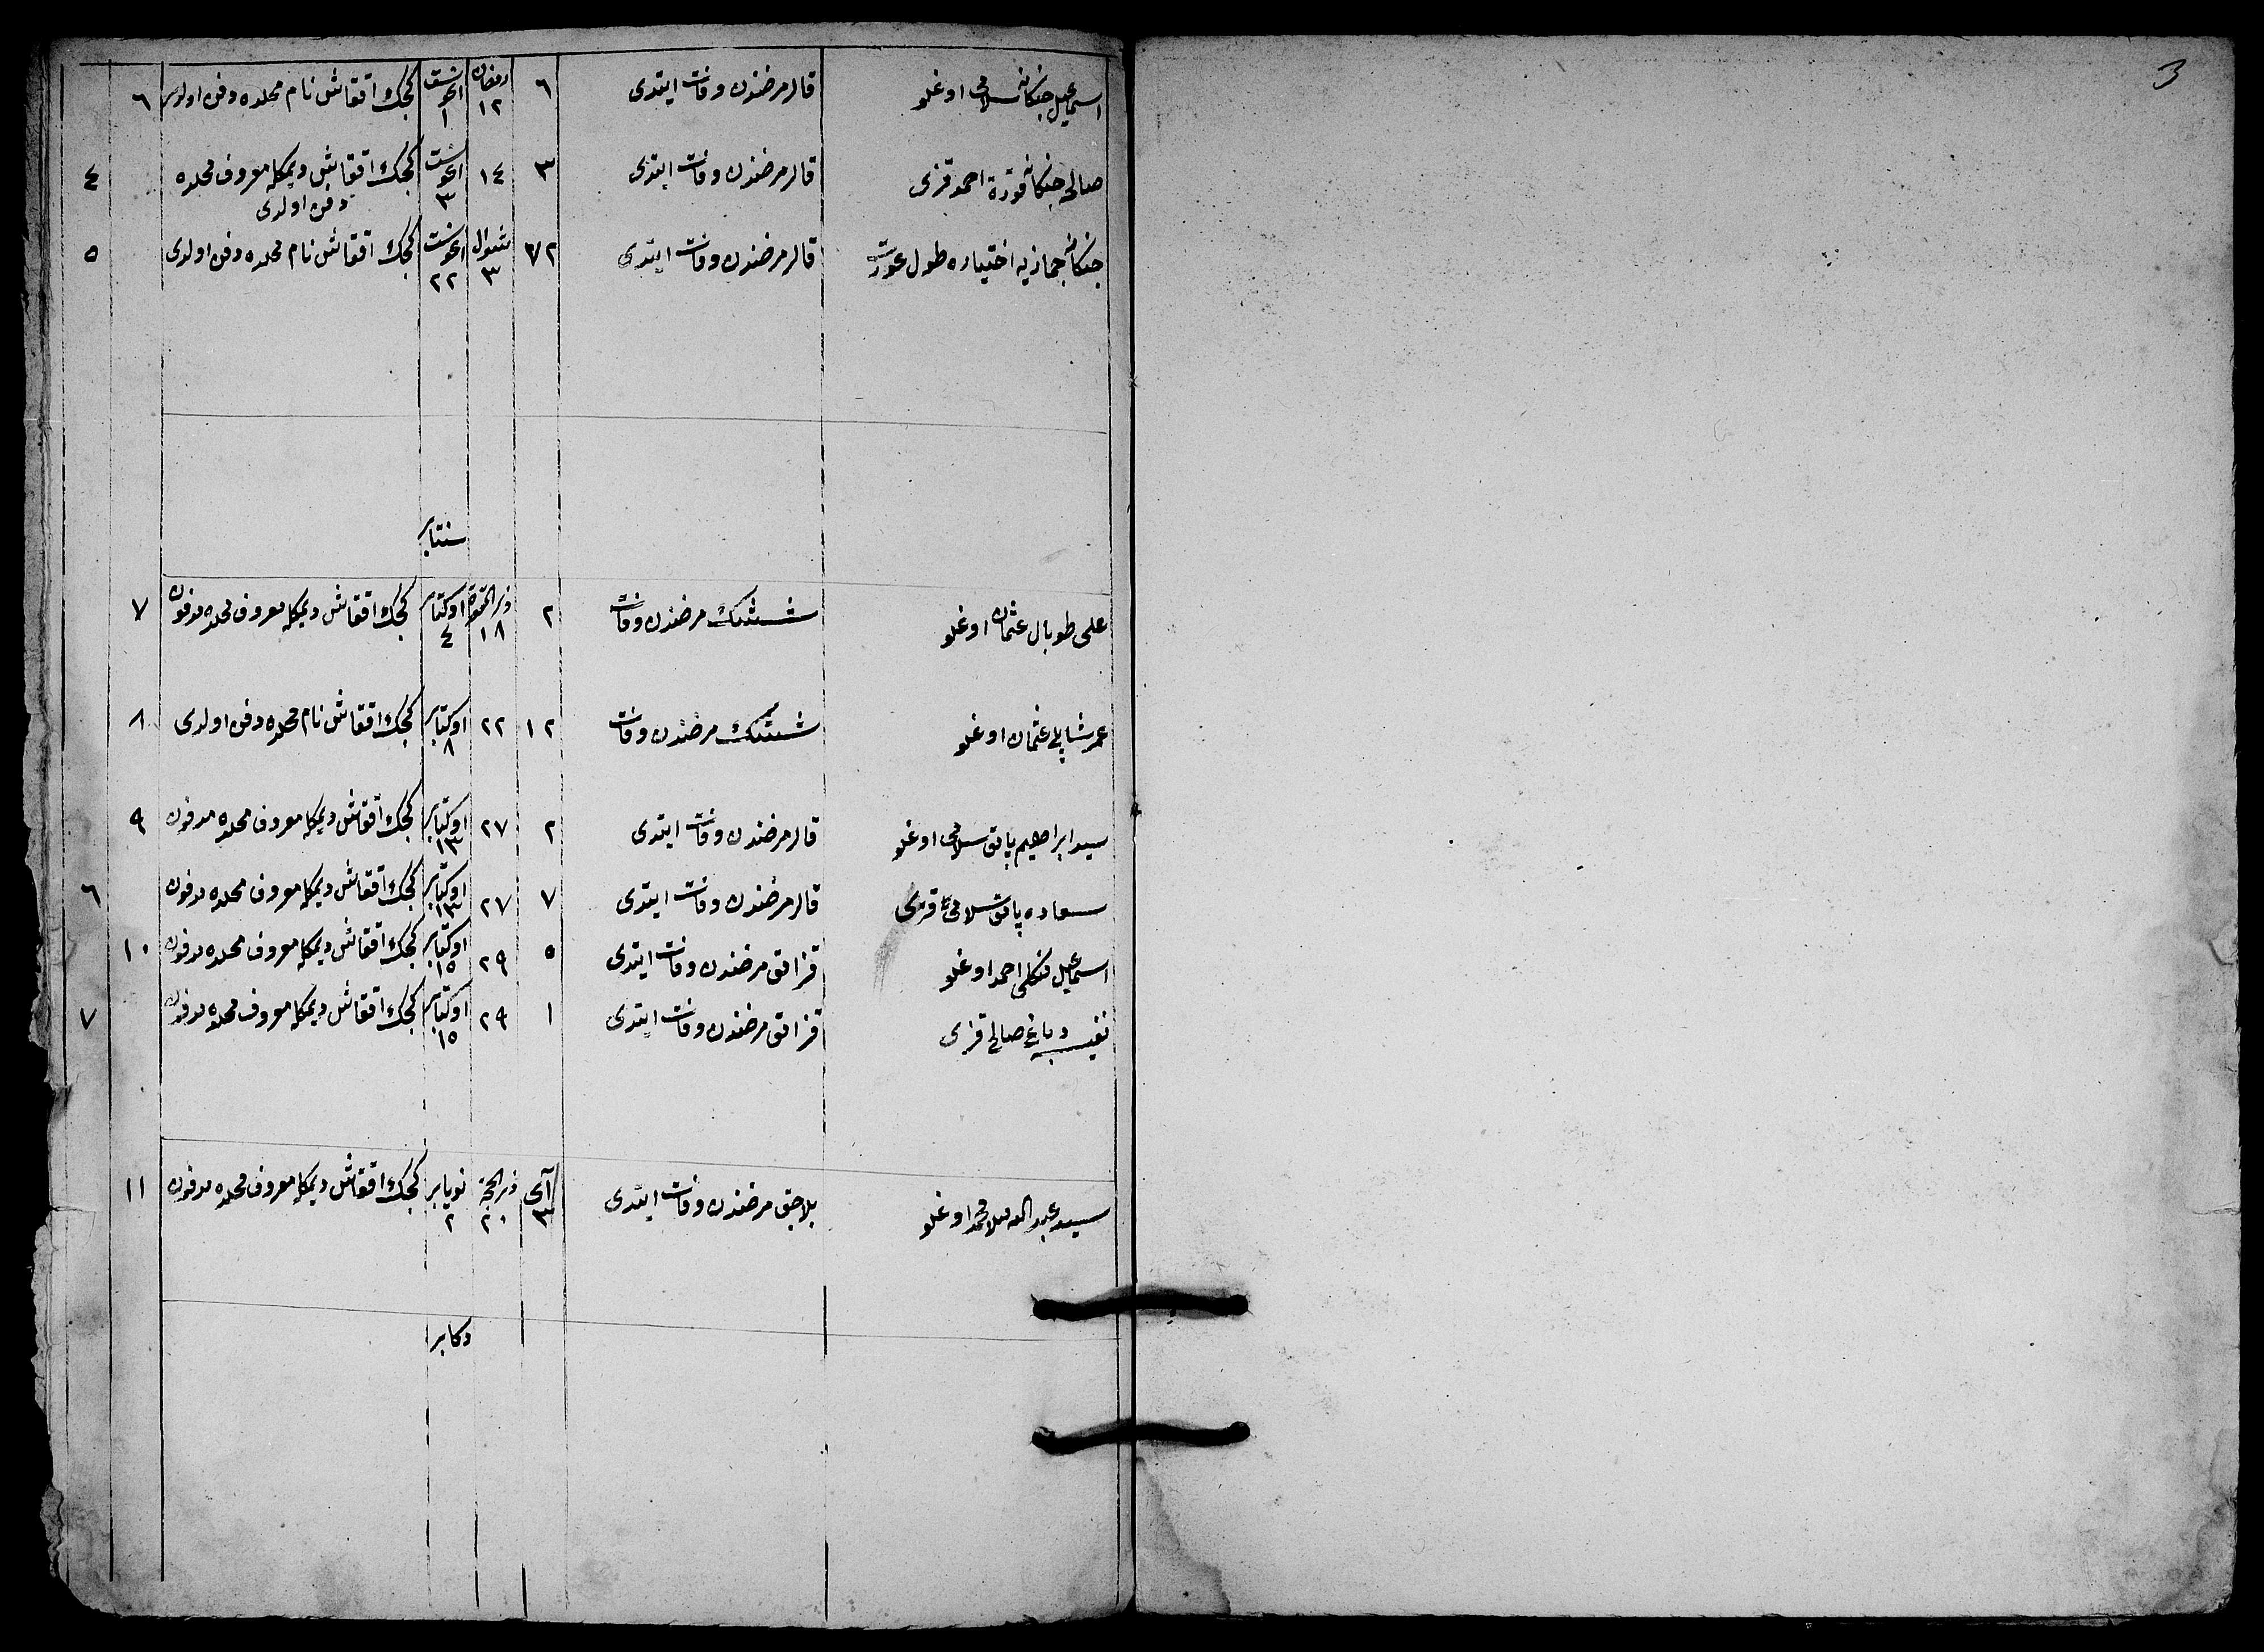 3
اسماعیل جنکانه سلامی اوغلو قالر مرضندن وفات ایتدی ٦ رمضان ١٢ اغوست ١ کجک اققاش نام محلده دفن اولدی ٦
صالح جنکانه قورة احمد قزی قالر مرضندن وفات ایتدی ٣ ١٤ اغوست ٣ کجک اققاش دیمکله معروف محلده دفن اولدی ٤
جنکانه جمازیه اختیاره طول عورت قالر مرضندن وفات ایتدی ٧٢ شوال ٣ اغوست ٢٢ کجک اققاش نام محلده دفن اولدی ٥
سنتابر
علی طوبال عثمان اوغلو ششک مرضندن وفات ٢ ذی القعدة ١٨ اوکتابر ٤ کجک اققاش دیمکله معروف محلده مدفون ٧
عمر شاپلی عثمان اوغلو ششک مرضندن وفات ١٢ ٢٢ اوکتابر ٨ کجک اققاش نام محلده دفن اولدی ٨
سید ابراهیم پاپق سلامی اوغلو قالر مرضندن وفات ایتدی ٢ ٢٧ اوکتابر ١٣ کجک اققاش دیمکله معروف محلده مدفون ٩
سعاده پاپق سلامی قزی قالر مرضندن وفات ایتدی ٧ ٢٧ اوکتابر ١٣ کجک اققاش دیمکله معروف محلده مدفون ٦
اسماعیل احمد اوغلو قزامق مرضندن وفات ایتدی ٥ ٢٩ اوکتابر ١٥ کجک اققاش دیمکله معروف محلده مدفون ١٠
نفیسه دباغ صالح قزی قزامق مرضندن وفات ایتدی ١ ٢٩ اوکتابر ١٥ کجک اققاش دیمکله معروف محلده مدفون ٧
سید عبدالله ملا محمد اوغلو مرضندن وفات ایتدی آی ٣ ذی الحجة ٢٠ نویابر ٢ کجک اققاش دیمکله معروف محلده مدفون ١١
دکابر